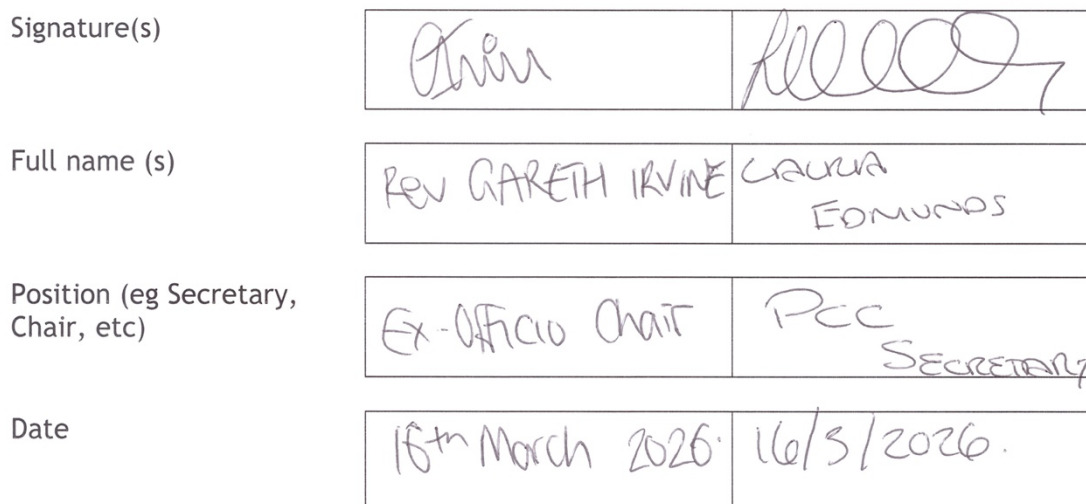 Signature(s)
Full name (s)
Rev GARETH IRVINE
LAURA
EDMUNDS
Position (eg Secretary,
Chair, etc)
Ex-Officio Chair
PCC
SECRETARY
Date
16th March 2026.
16/3/2026.